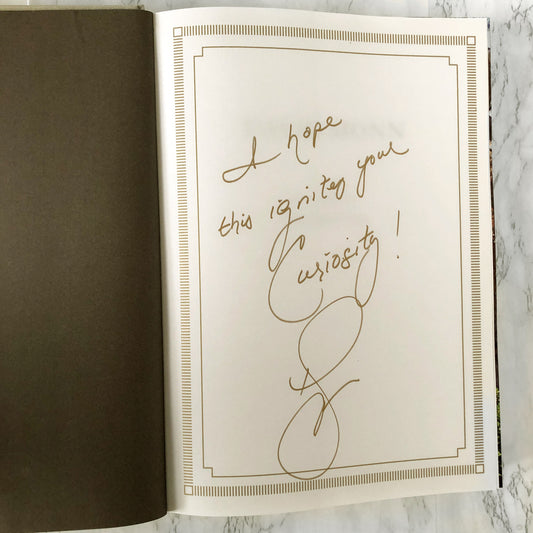 I hope
this ignites your
Curiosity!